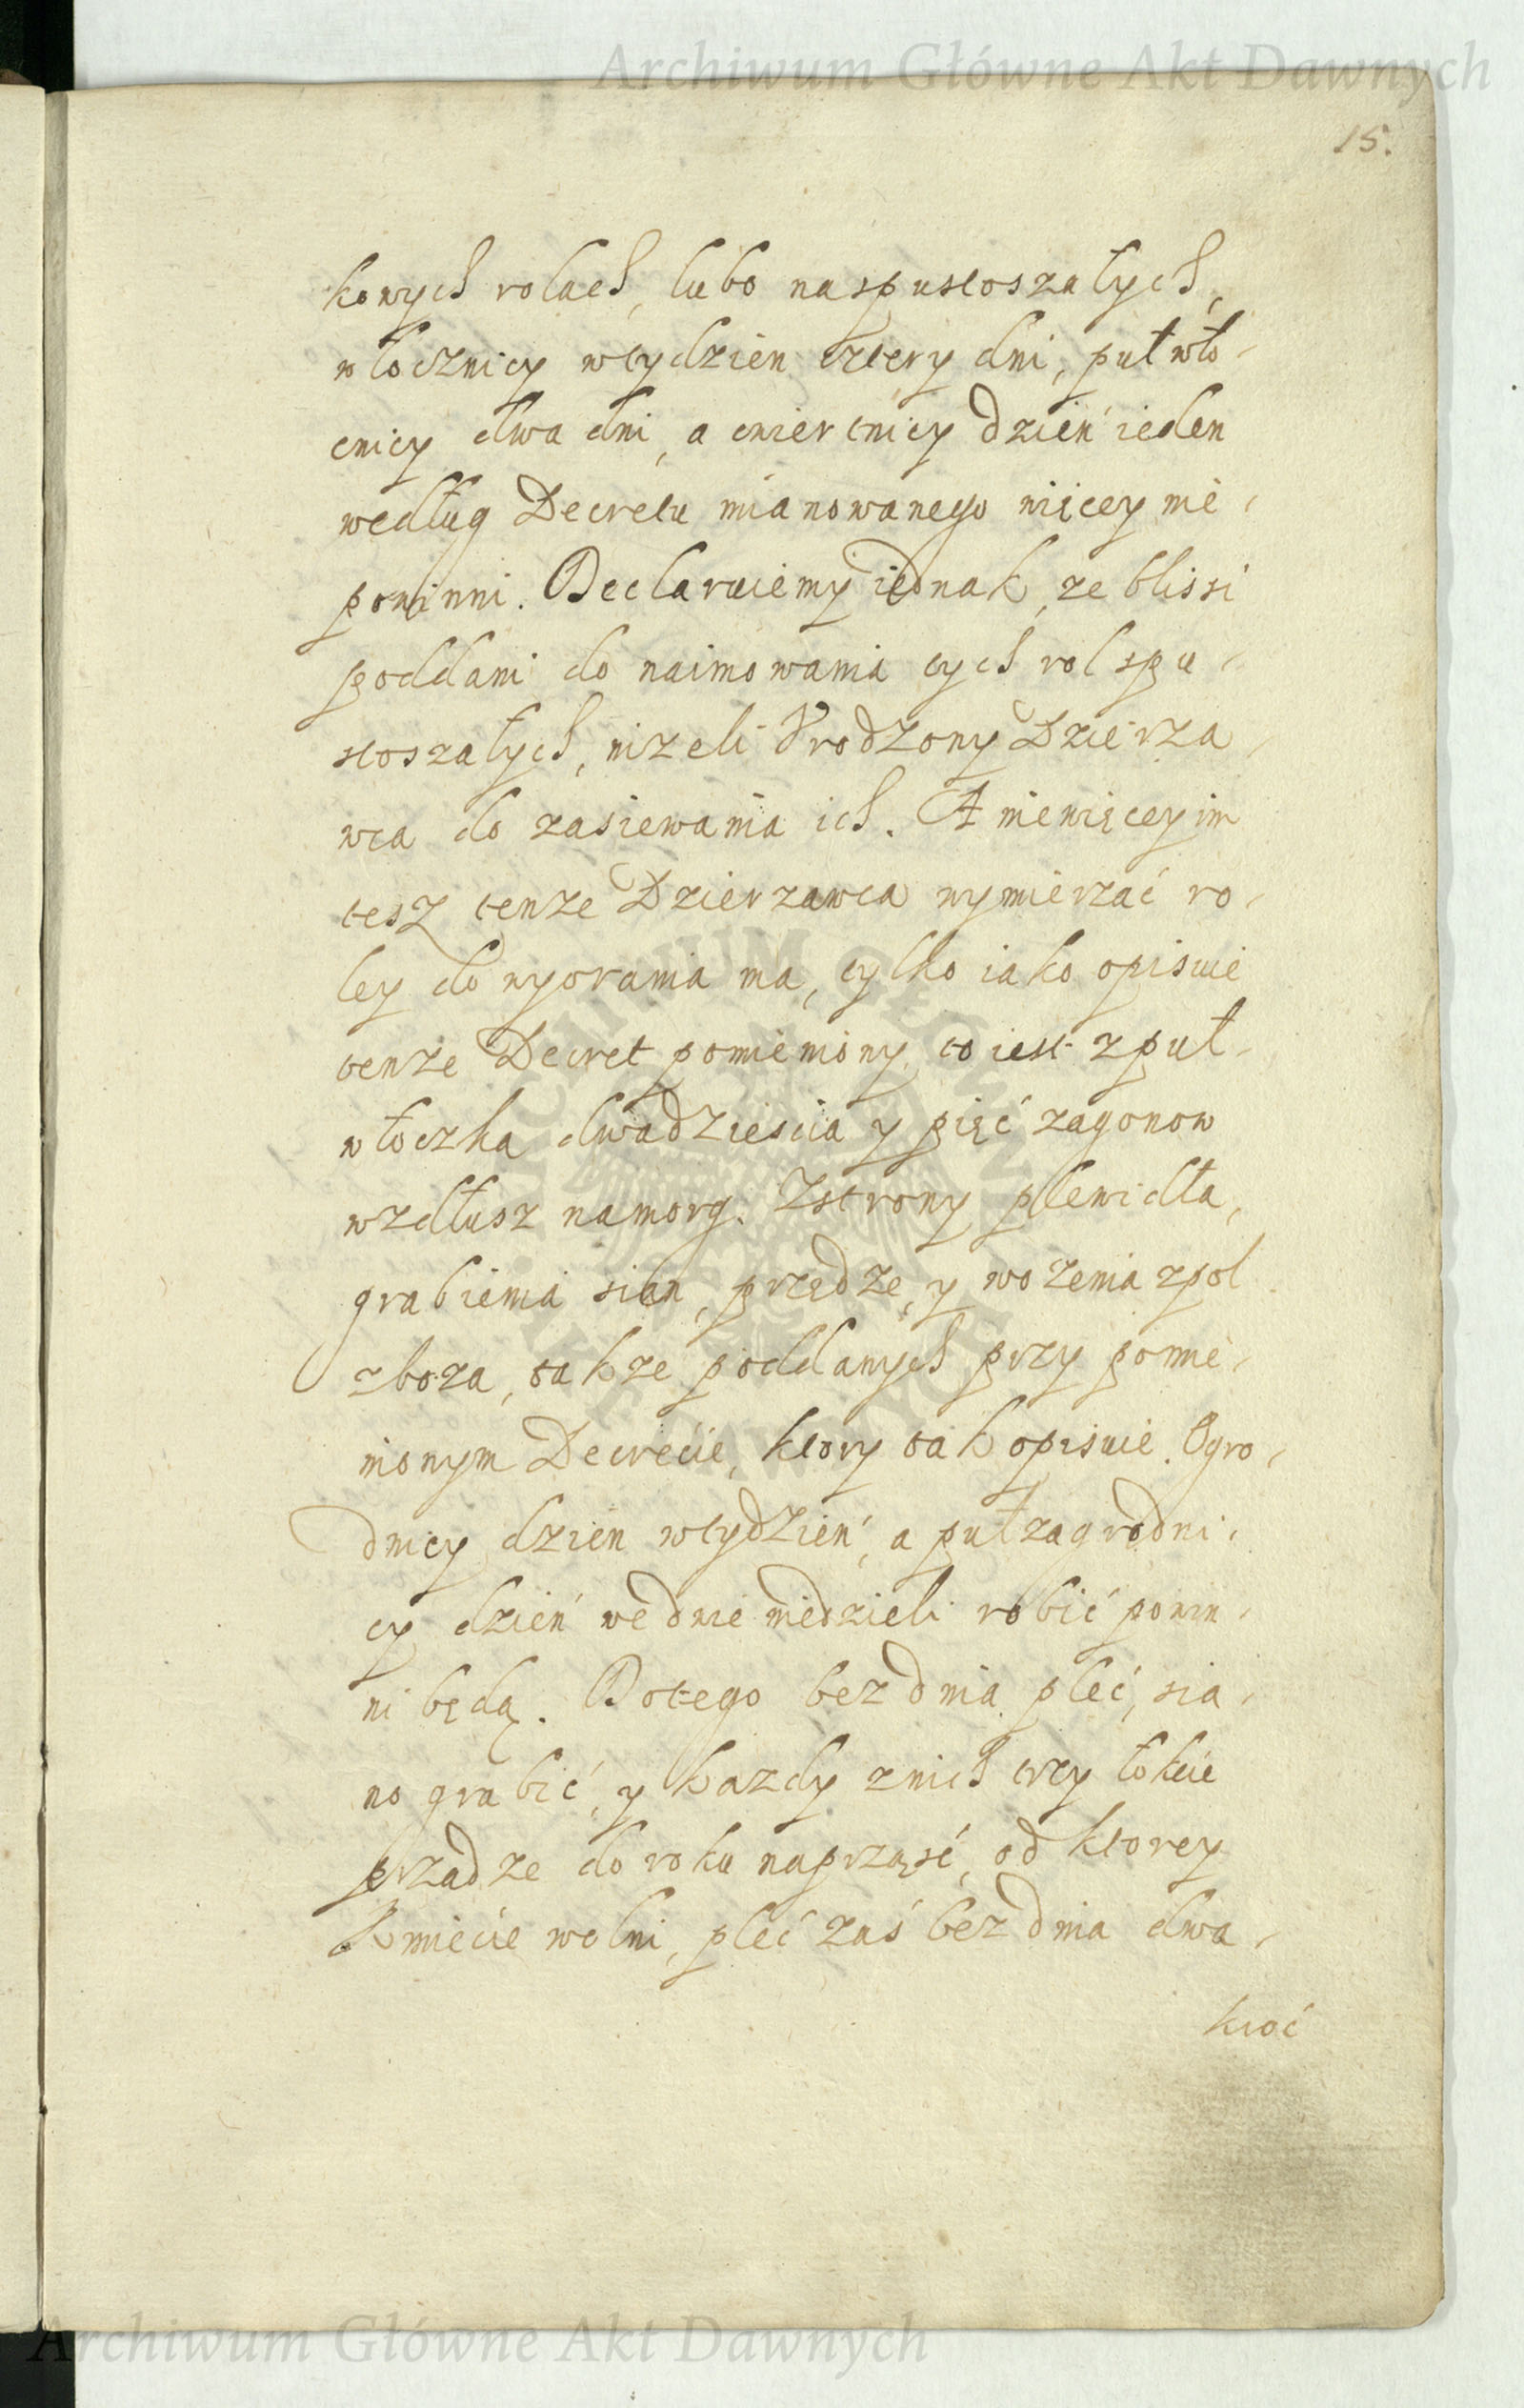 Archiwum Główne Akt Dawnych
15.
kowych rolach, lubo na spustoszałych,
włocznicy w tydzien cztery dni, puł wło-
cnicy dwa dni, a cwiertnicy dzień ieden
według Decretu mianowanego więcey nie
powinni. Declaruiemy iednak, ze blissi
poddani do naimowania tych rol spu-
stoszałych, nizeli Vrodzony Dzierza-
wca do zasiewania ich. A niewięcey im
tesz tenze Dzierzawca wymierzać ro-
ley do wyorania ma, tylko iako opisuie
tenze Decret pomieniony, to iest z puł-
włoczka dwadziescia y pięć zagonow
wzdłusz na morg. Z strony plewidła,
grabienia sian, przędze, y wozenia z pol
zboza, takze poddanych przy pomie-
nionym Decrecie, ktory tak opisuie. Ogro-
dnicy dzien w tydzień, a pułzagrodni-
cy dzień we dwie niedzieli robić powin-
ni będą. Do tego bez dnia pleć, sia-
no grabić, y kazdy z nich trzy łokcie
przadze do roku naprząsć, od ktorey
Kmiecie wolni, pleć zaś bez dnia dwa-
kroć
ARCHIWUM GŁÓWNE AKT DAWNYCH
Archiwum Główne Akt Dawnych